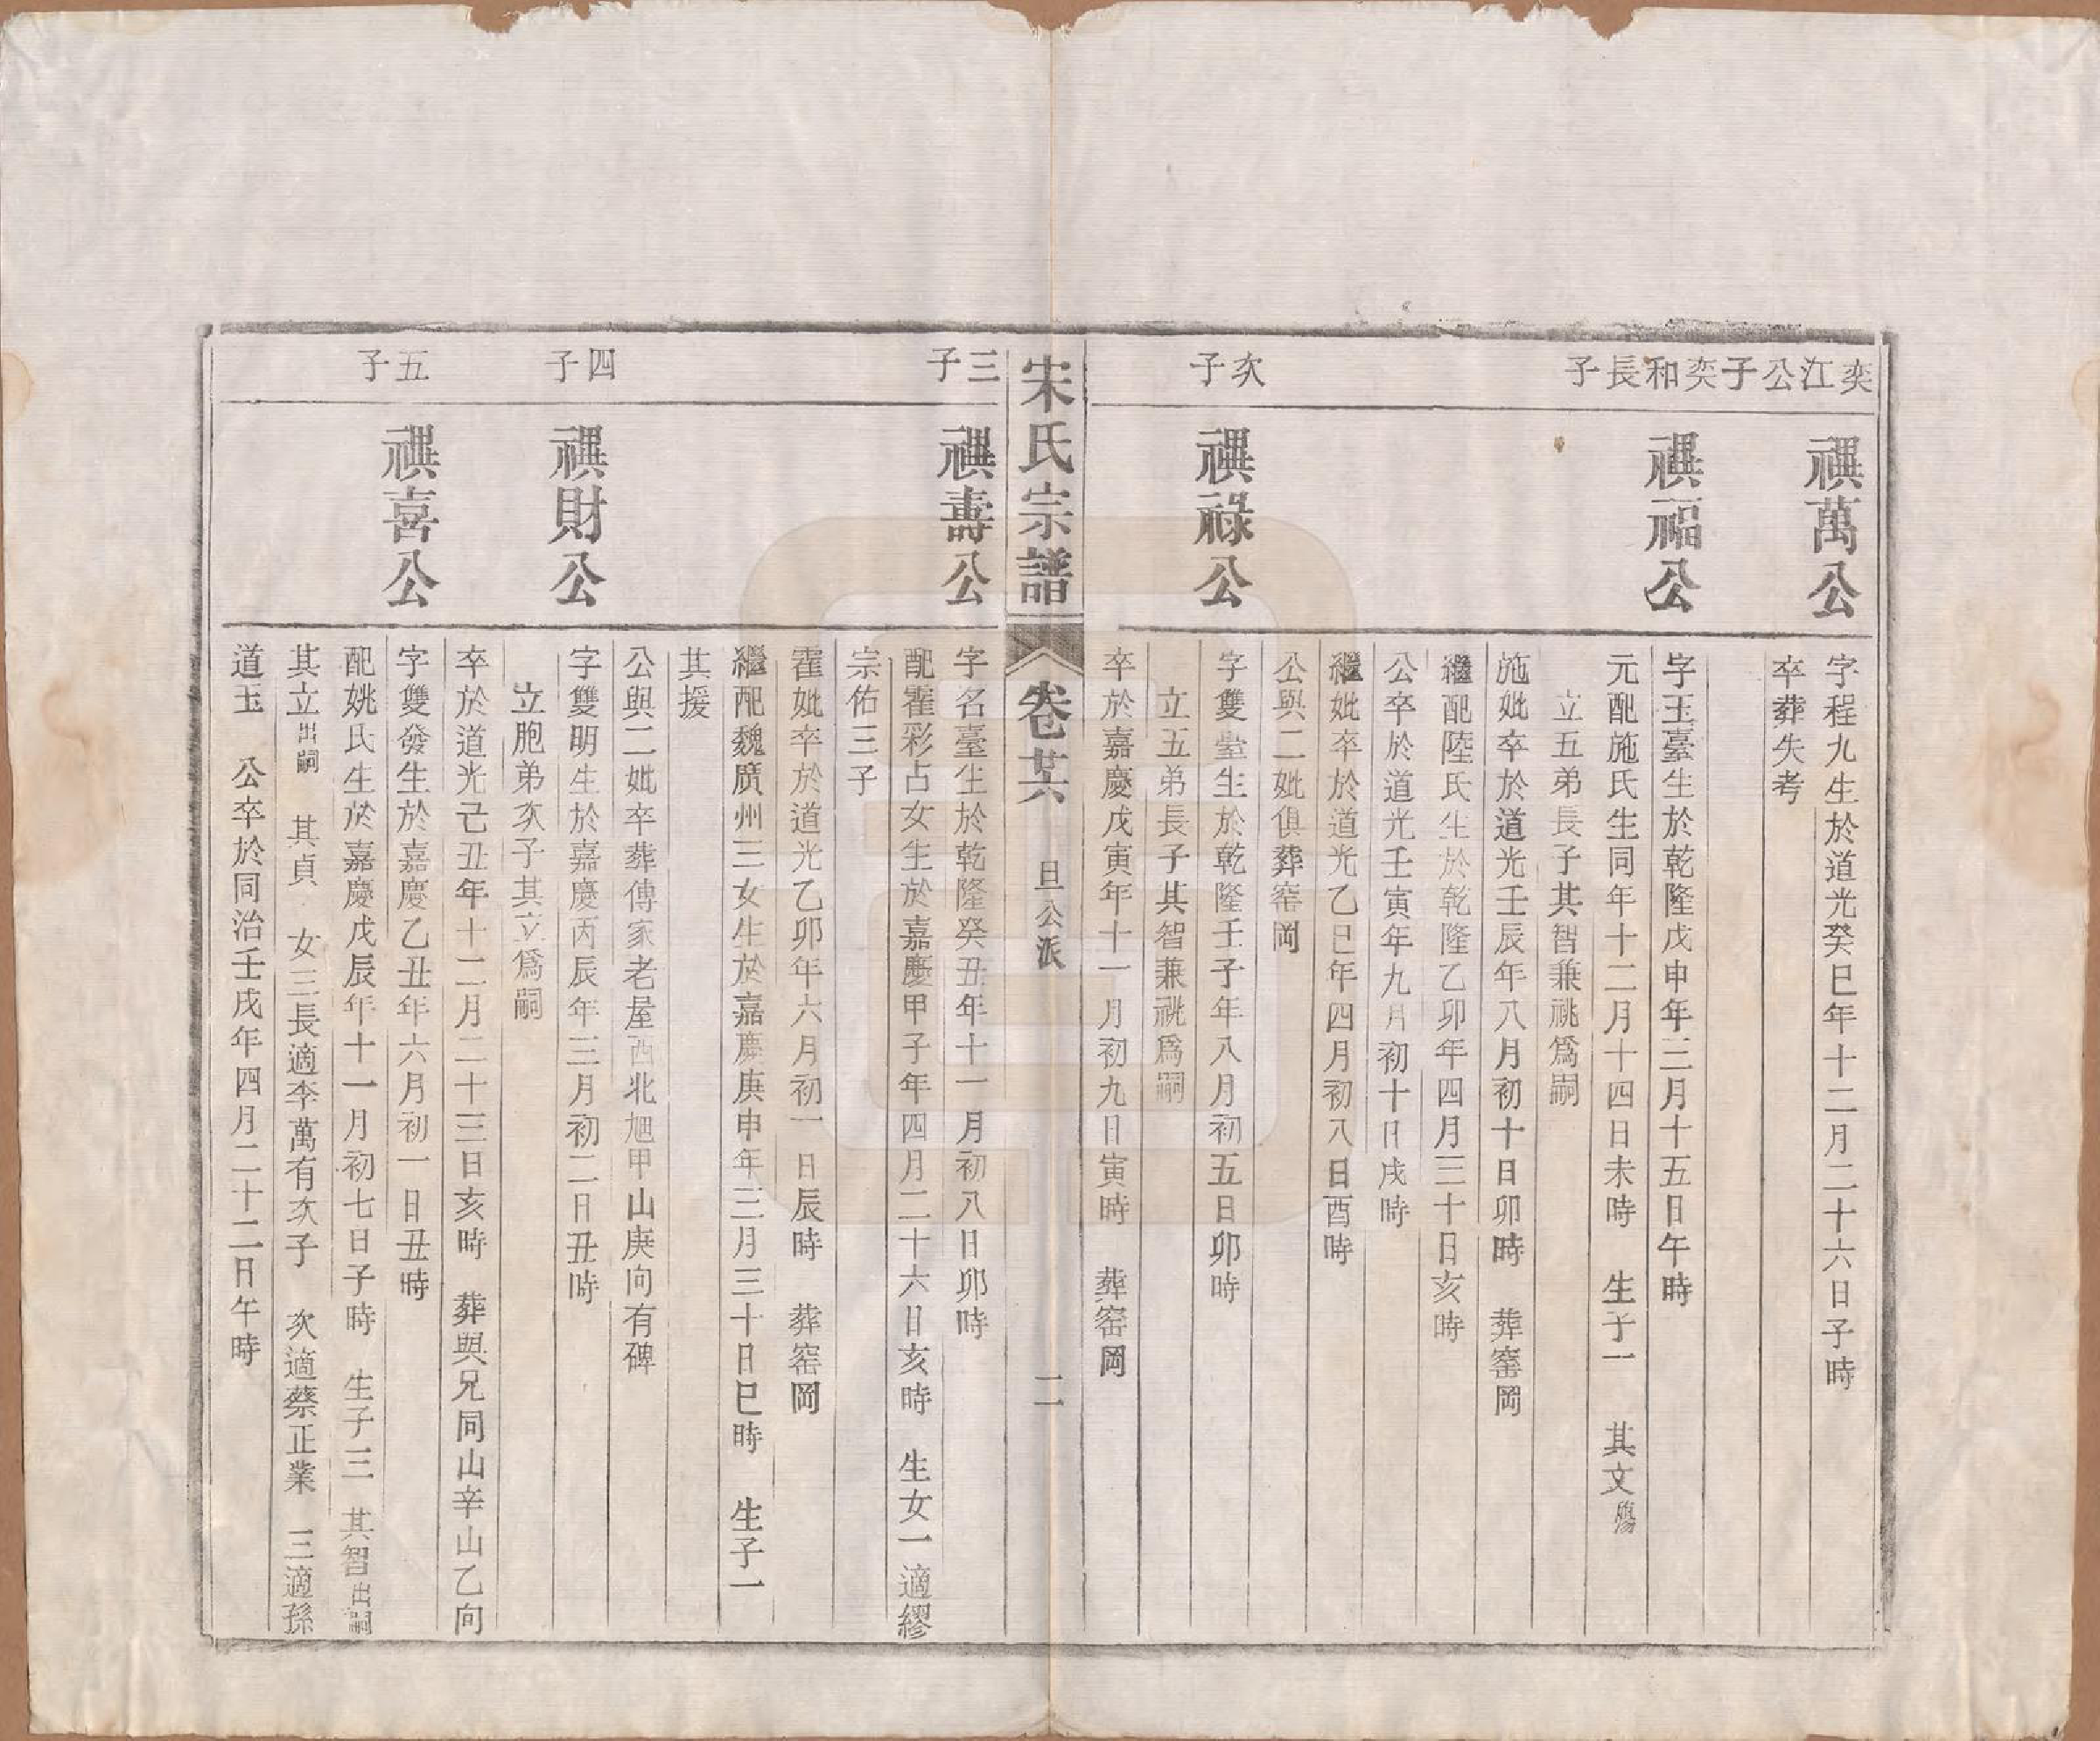 奕江公子
禩萬公
字程九生於道光癸巳年十二月二十六日子時
卒葬失考
奕和長子
禩福公
字玉臺生於乾隆戊申年三月十五日午時
元配施氏生同年十二月十四日未時　生子一　其文殤
立五弟長子其智兼祧爲嗣
施妣卒於道光壬辰年八月初十日卯時　葬窰岡
繼配陸氏生於乾隆乙卯年四月三十日亥時
公卒於道光壬寅年九月初十日戌時
繼妣卒於道光乙巳年四月初八日酉時
公與二妣俱葬窰岡
次子
禩祿公
字雙堂生於乾隆壬子年八月初五日卯時
立五弟長子其智兼祧爲嗣
卒於嘉慶戊寅年十一月初九日寅時　葬窰岡
宋氏宗譜　卷廿六　旦公派　二
三子
禩壽公
字名臺生於乾隆癸丑年十一月初八日卯時
配霍彩占女生於嘉慶甲子年四月二十六日亥時　生女一適繆
宗佑三子
霍妣卒於道光乙卯年六月初一日辰時　葬窰岡
繼配魏廣州三女生於嘉慶庚申年三月三十日巳時　生子一
其援
公與二妣卒葬傳家老屋西北旭甲山庚向有碑
四子
禩財公
字雙明生於嘉慶丙辰年三月初二日丑時
立胞弟次子其立爲嗣
卒於道光己丑年十二月二十三日亥時　葬與兄同山辛山乙向
五子
禩喜公
字雙發生於嘉慶乙丑年六月初一日丑時
配姚氏生於嘉慶戊辰年十一月初七日子時　生子三　其智出嗣
其立出嗣　其貞　女三長適李萬有次子　次適蔡正業　三適孫
道玉　公卒於同治壬戌年四月二十二日午時